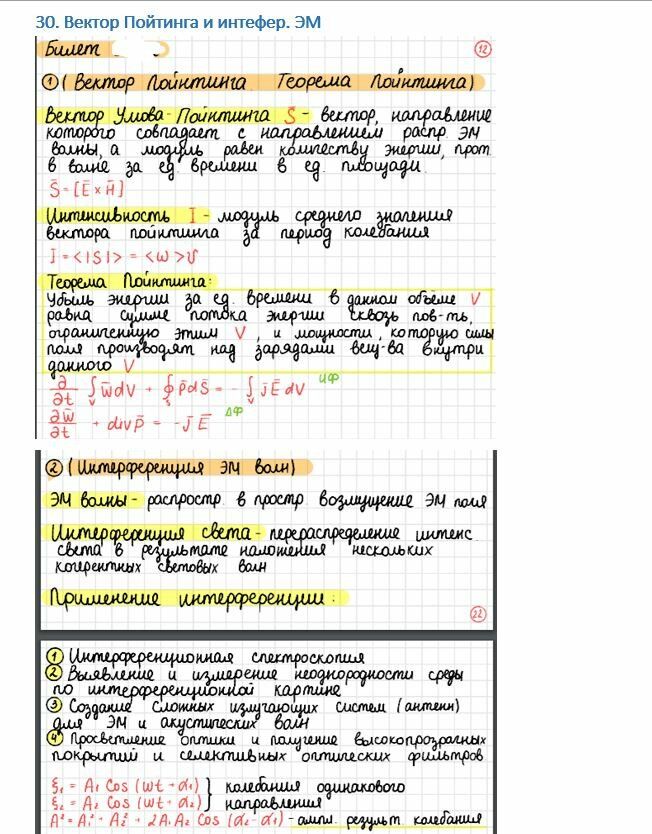 30. Вектор Пойтинга и интефер. ЭМ
Билет
12
1 (Вектор Пойнтинга. Теорема Пойнтинга)
Вектор Умова-Пойнтинга S̄ - вектор, направление
которого совпадает с направлением распр. ЭМ
волны, а модуль равен количеству энергии, прот
в волне за ед. времени в ед. площади.
S̄ = [Ē × H̄]
Интенсивность I - модуль среднего значения
вектора пойнтинга за период колебания
I = <|S|> = <w> v
Теорема Пойнтинга:
Убыль энергии за ед. времени в данном объёме V
равна сумме потока энергии сквозь пов-ть,
ограниченную этим V, и мощности, которую силы
поля производят над зарядами вещ-ва внутри
данного V
∂/∂t ∫_V w̄ dV + ∮_S P̄ dS̄ = - ∫_V j̄ Ē dV ИФ
∂w̄/∂t + div P̄ = - j̄ Ē ДФ
2 (Интерференция ЭМ волн)
ЭМ волны - распростр. в простр возмущение ЭМ поля
Интерференция света - перераспределение интенс.
света в результате наложения нескольких
когерентных световых волн
Применение интерференции:
22
1 Интерференционная спектроскопия
2 Выявление и измерение неоднородности среды
по интерференционной картине
3 Создание сложных излучающих систем (антенн)
для ЭМ и акустических волн
4 Просветление оптики и получение высокопрозрачных
покрытий и селективных оптических фильтров
ξ₁ = A₁ Cos (wt + α₁) } колебания одинакового
ξ₂ = A₂ Cos (wt + α₂) } направления
A² = A₁² + A₂² + 2A₁A₂ Cos (α₂ - α₁) - ампл. результ колебания